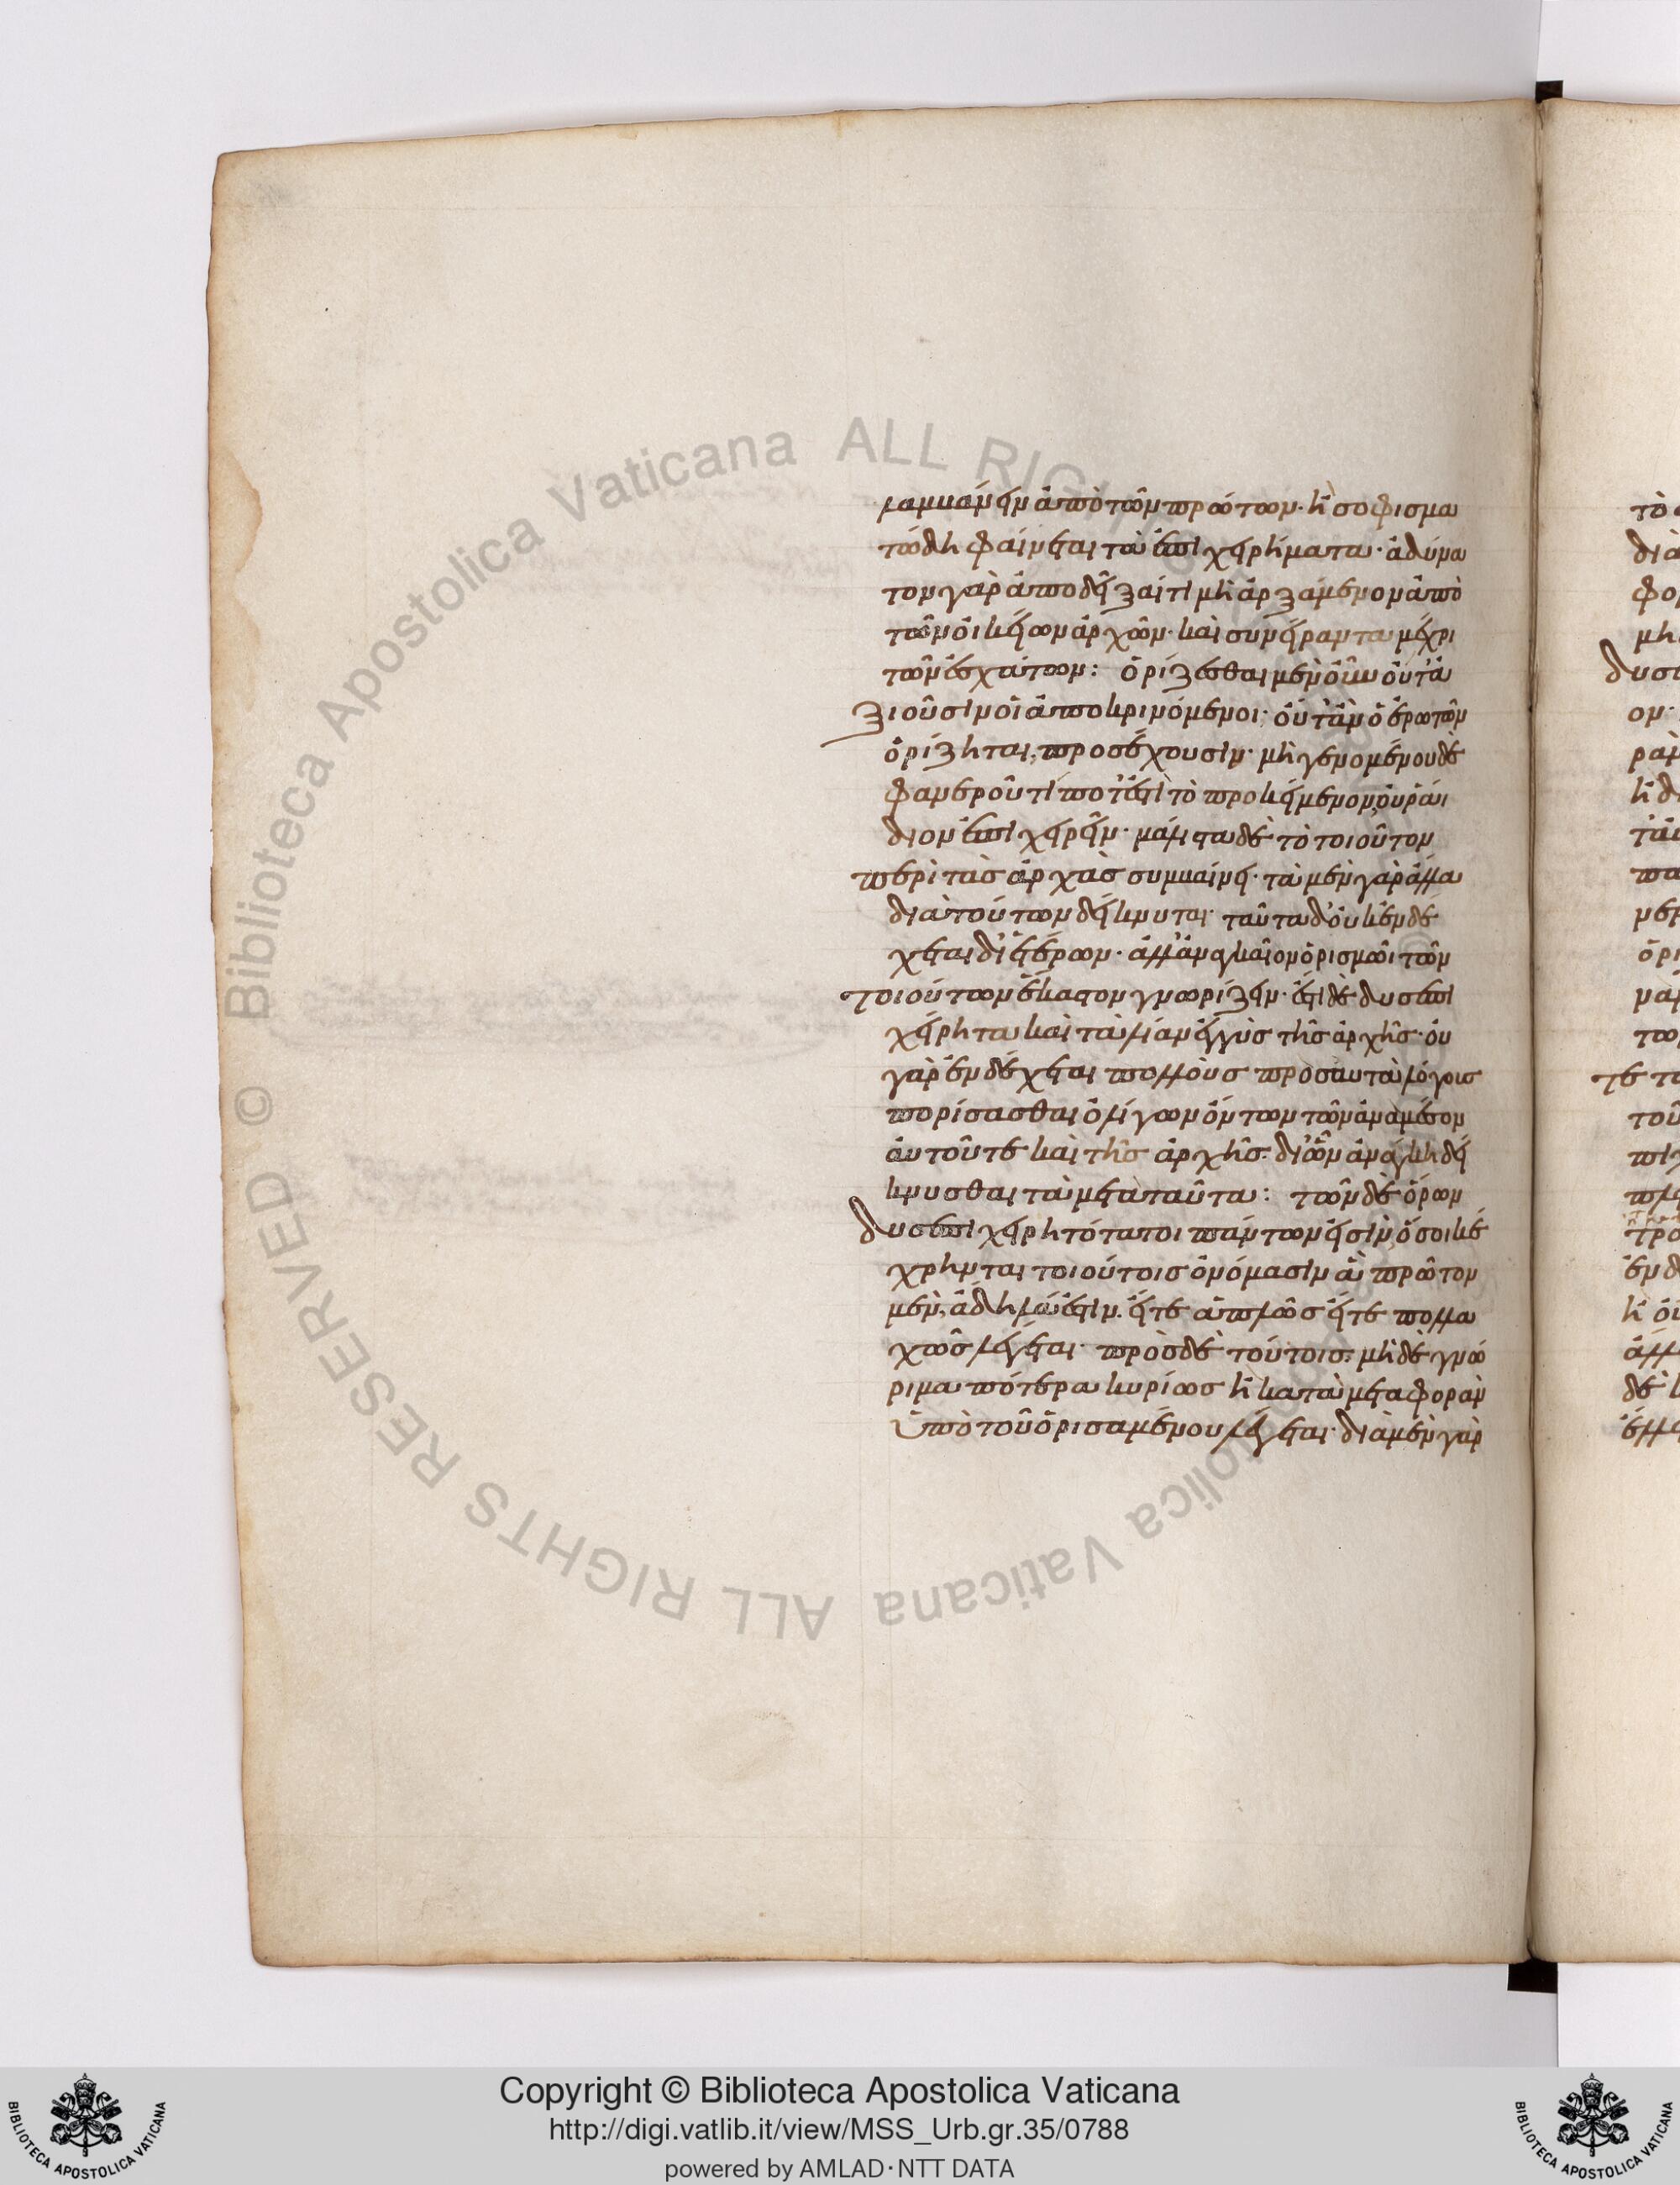 λαμβάνειν ἀπὸ τῶν πρώτων. ἢ σοφισμα
τώδη φαίνεται τὰ ἐπιχειρήματα. ἀδύνα
τον γὰρ ἀποδεῖξαί τι μὴ ἀρξάμενον ἀπὸ
τῶν οἰκείων ἀρχῶν. καὶ συνείραντα μέχρι
τῶν ἐσχάτων: ὁρίζεσθαι μὲν οὖν οὔτ' ἀ
ξιοῦσιν οἱ ἀποκρινόμενοι. οὔτ' ἂν ὁ ἐρωτῶν
ὁρίζηται, προσέχουσιν. μὴ γενομένου δὲ
φανεροῦ τί ποτ' ἐστὶ τὸ προκείμενον, οὐ ῥάι
διον ἐπιχειρεῖν. μάλιστα δὲ τὸ τοιοῦτον
περὶ τὰς ἀρχὰς συμβαίνει. τὰ μὲν γὰρ ἄλλα
διὰ τούτων δείκνυται. ταῦτα δ' οὐκ ἐνδέ
χεται δι' ἑτέρων. ἀλλ' ἀναγκαῖον ὁρισμῶι τῶν
τοιούτων ἕκαστον γνωρίζειν. ἔστι δὲ δυσεπι
χείρητα καὶ τὰ λίαν ἐγγὺς τῆς ἀρχῆς. οὐ
γὰρ ἐνδέχεται πολλοὺς πρὸς αυτὰ λόγοις
πορίσασθαι ὀλίγων ὄντων τῶν ἀναμέσον
αὐτοῦ τε καὶ τῆς ἀρχῆς. δι' ὧν ἀνάγκη δεί
κνυσθαι τὰ μετὰ ταῦτα: τῶν δὲ ὅρων
δυσεπιχειρητότατοι πάντων εἰσὶν ὅσοι κέ
χρηνται τοιούτοις ὀνόμασιν ἃ πρῶτον
μὲν, ἄδηλά ἐστιν. εἴτε ἁπλῶς εἴτε πολλα
χῶς λέγεται. πρὸς δὲ τούτοις. μὴ δὲ γνώ
ριμα πότερα κυρίως ἢ κατὰ μεταφορὰν
ὑπὸ τοῦ ὁρισαμένου λέγεται. διὰ μὲν γὰρ
Copyright © Biblioteca Apostolica Vaticana
http://digi.vatlib.it/view/MSS_Urb.gr.35/0788
powered by AMLAD·NTT DATA